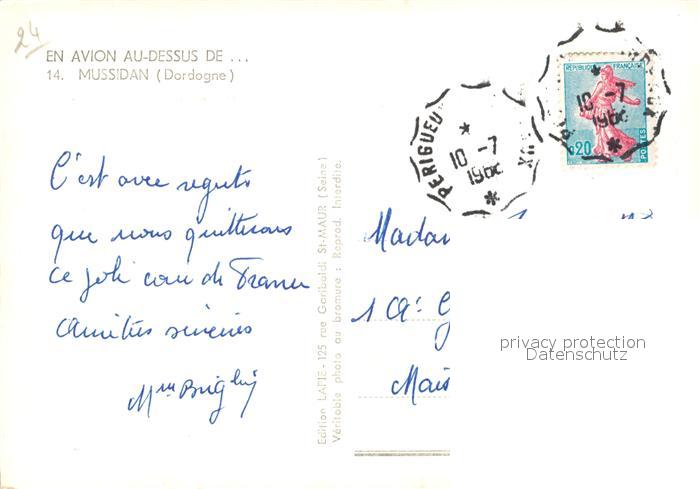 24
EN AVION AU-DESSUS DE ...
14. MUSSIDAN (Dordogne)
C'est avec regrets
que nous quitterons
ce joli coin de France
Amitiés sincères
Mme
Edition LAPIE - 125 rue Garibaldi St-MAUR (Seine)
Véritable photo au bromure : Reprod. Interdite.
PERIGUEU
10 -7
196
REPUBLIQUE FRANÇAISE
10 -7
196
0,20
POSTES
Madam
1 
Mais
privacy protection
Datenschutz